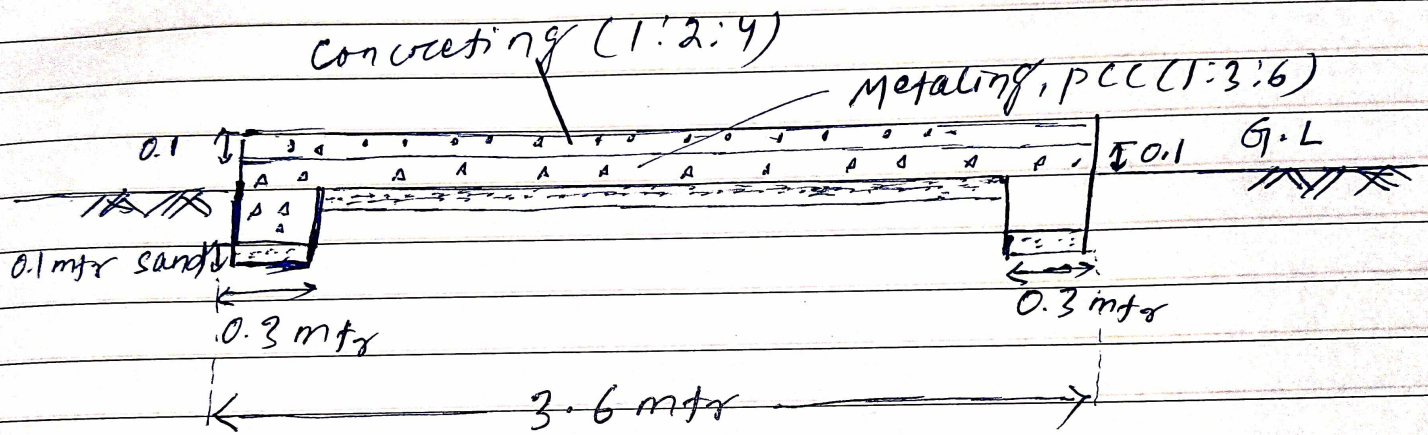 Concreting (1:2:4)
Metaling, PCC (1:3:6)
0.1
0.1
G.L
0.1 mtr sand
0.3 mtr
0.3 mtr
3.6 mtr